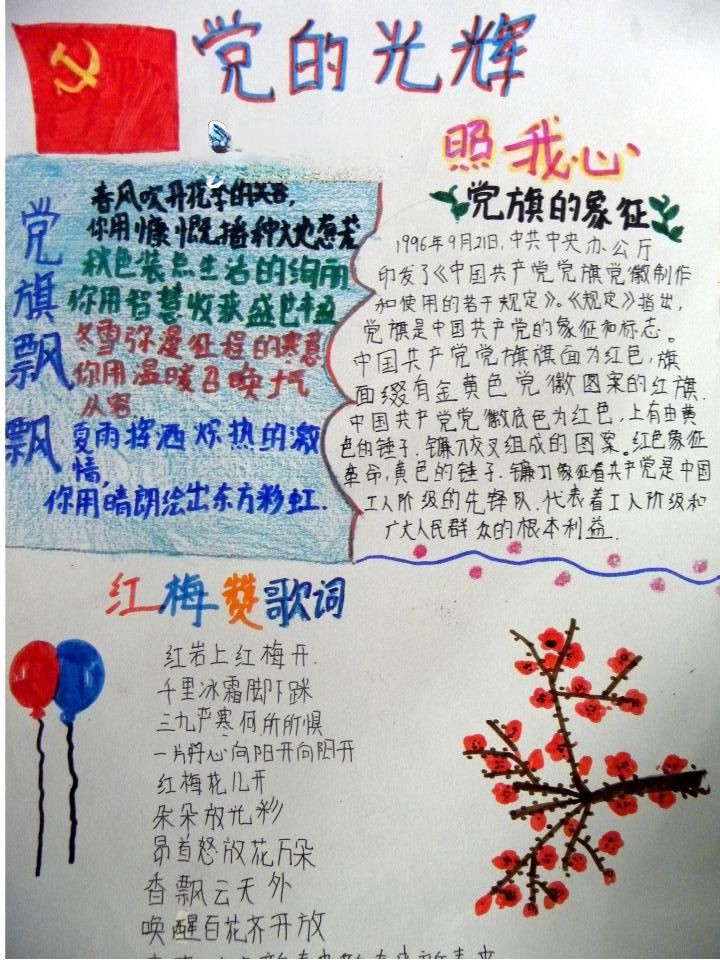 党的光辉
照我心
党旗飘飘
春风吹开花季的笑容,
你用慷慨播种大地葱茏
秋色装点生活的绚丽
你用智慧收获盛世丰盈
冬雪弥漫征程的寒意
你用温暖召唤大气
从容
夏雨挥洒炽热的激
情,
你用晴朗绘出东方彩虹.
党旗的象征
1996年9月21日,中共中央办公厅
印发了《中国共产党党旗党徽制作
和使用的若干规定》。《规定》指出,
党旗是中国共产党的象征和标志。
中国共产党党旗旗面为红色,旗
面缀有金黄色党徽图案的红旗.
中国共产党党徽底色为红色,上有由黄
色的锤子、镰刀交叉组成的图案。红色象征
革命,黄色的锤子、镰刀象征着共产党是中国
工人阶级的先锋队.代表着工人阶级和
广大人民群众的根本利益.
红梅赞歌词
红岩上红梅开.
千里冰霜脚下踩
三九严寒何所所惧
一片丹心向阳开向阳开
红梅花儿开
朵朵放光彩
昂首怒放花万朵
香飘云天外
唤醒百花齐开放